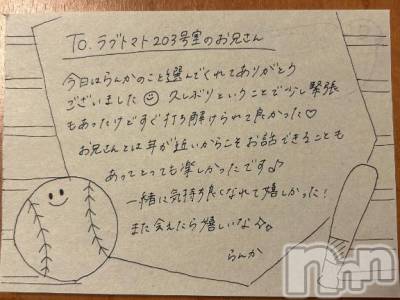 To. ラブトマト203号室のお兄さん
今日はらんかのこと選んでくれてありがとう
ございました☺ 久しぶりということで少し緊張
もあったけどすぐ打ち解けられて良かった♡
お兄さんとは年が近いからこそお話できることも
あってとっても楽しかったです♪
一緒に気持ち良くなれて嬉しかった!
また会えたら嬉しいな☆。
らんか